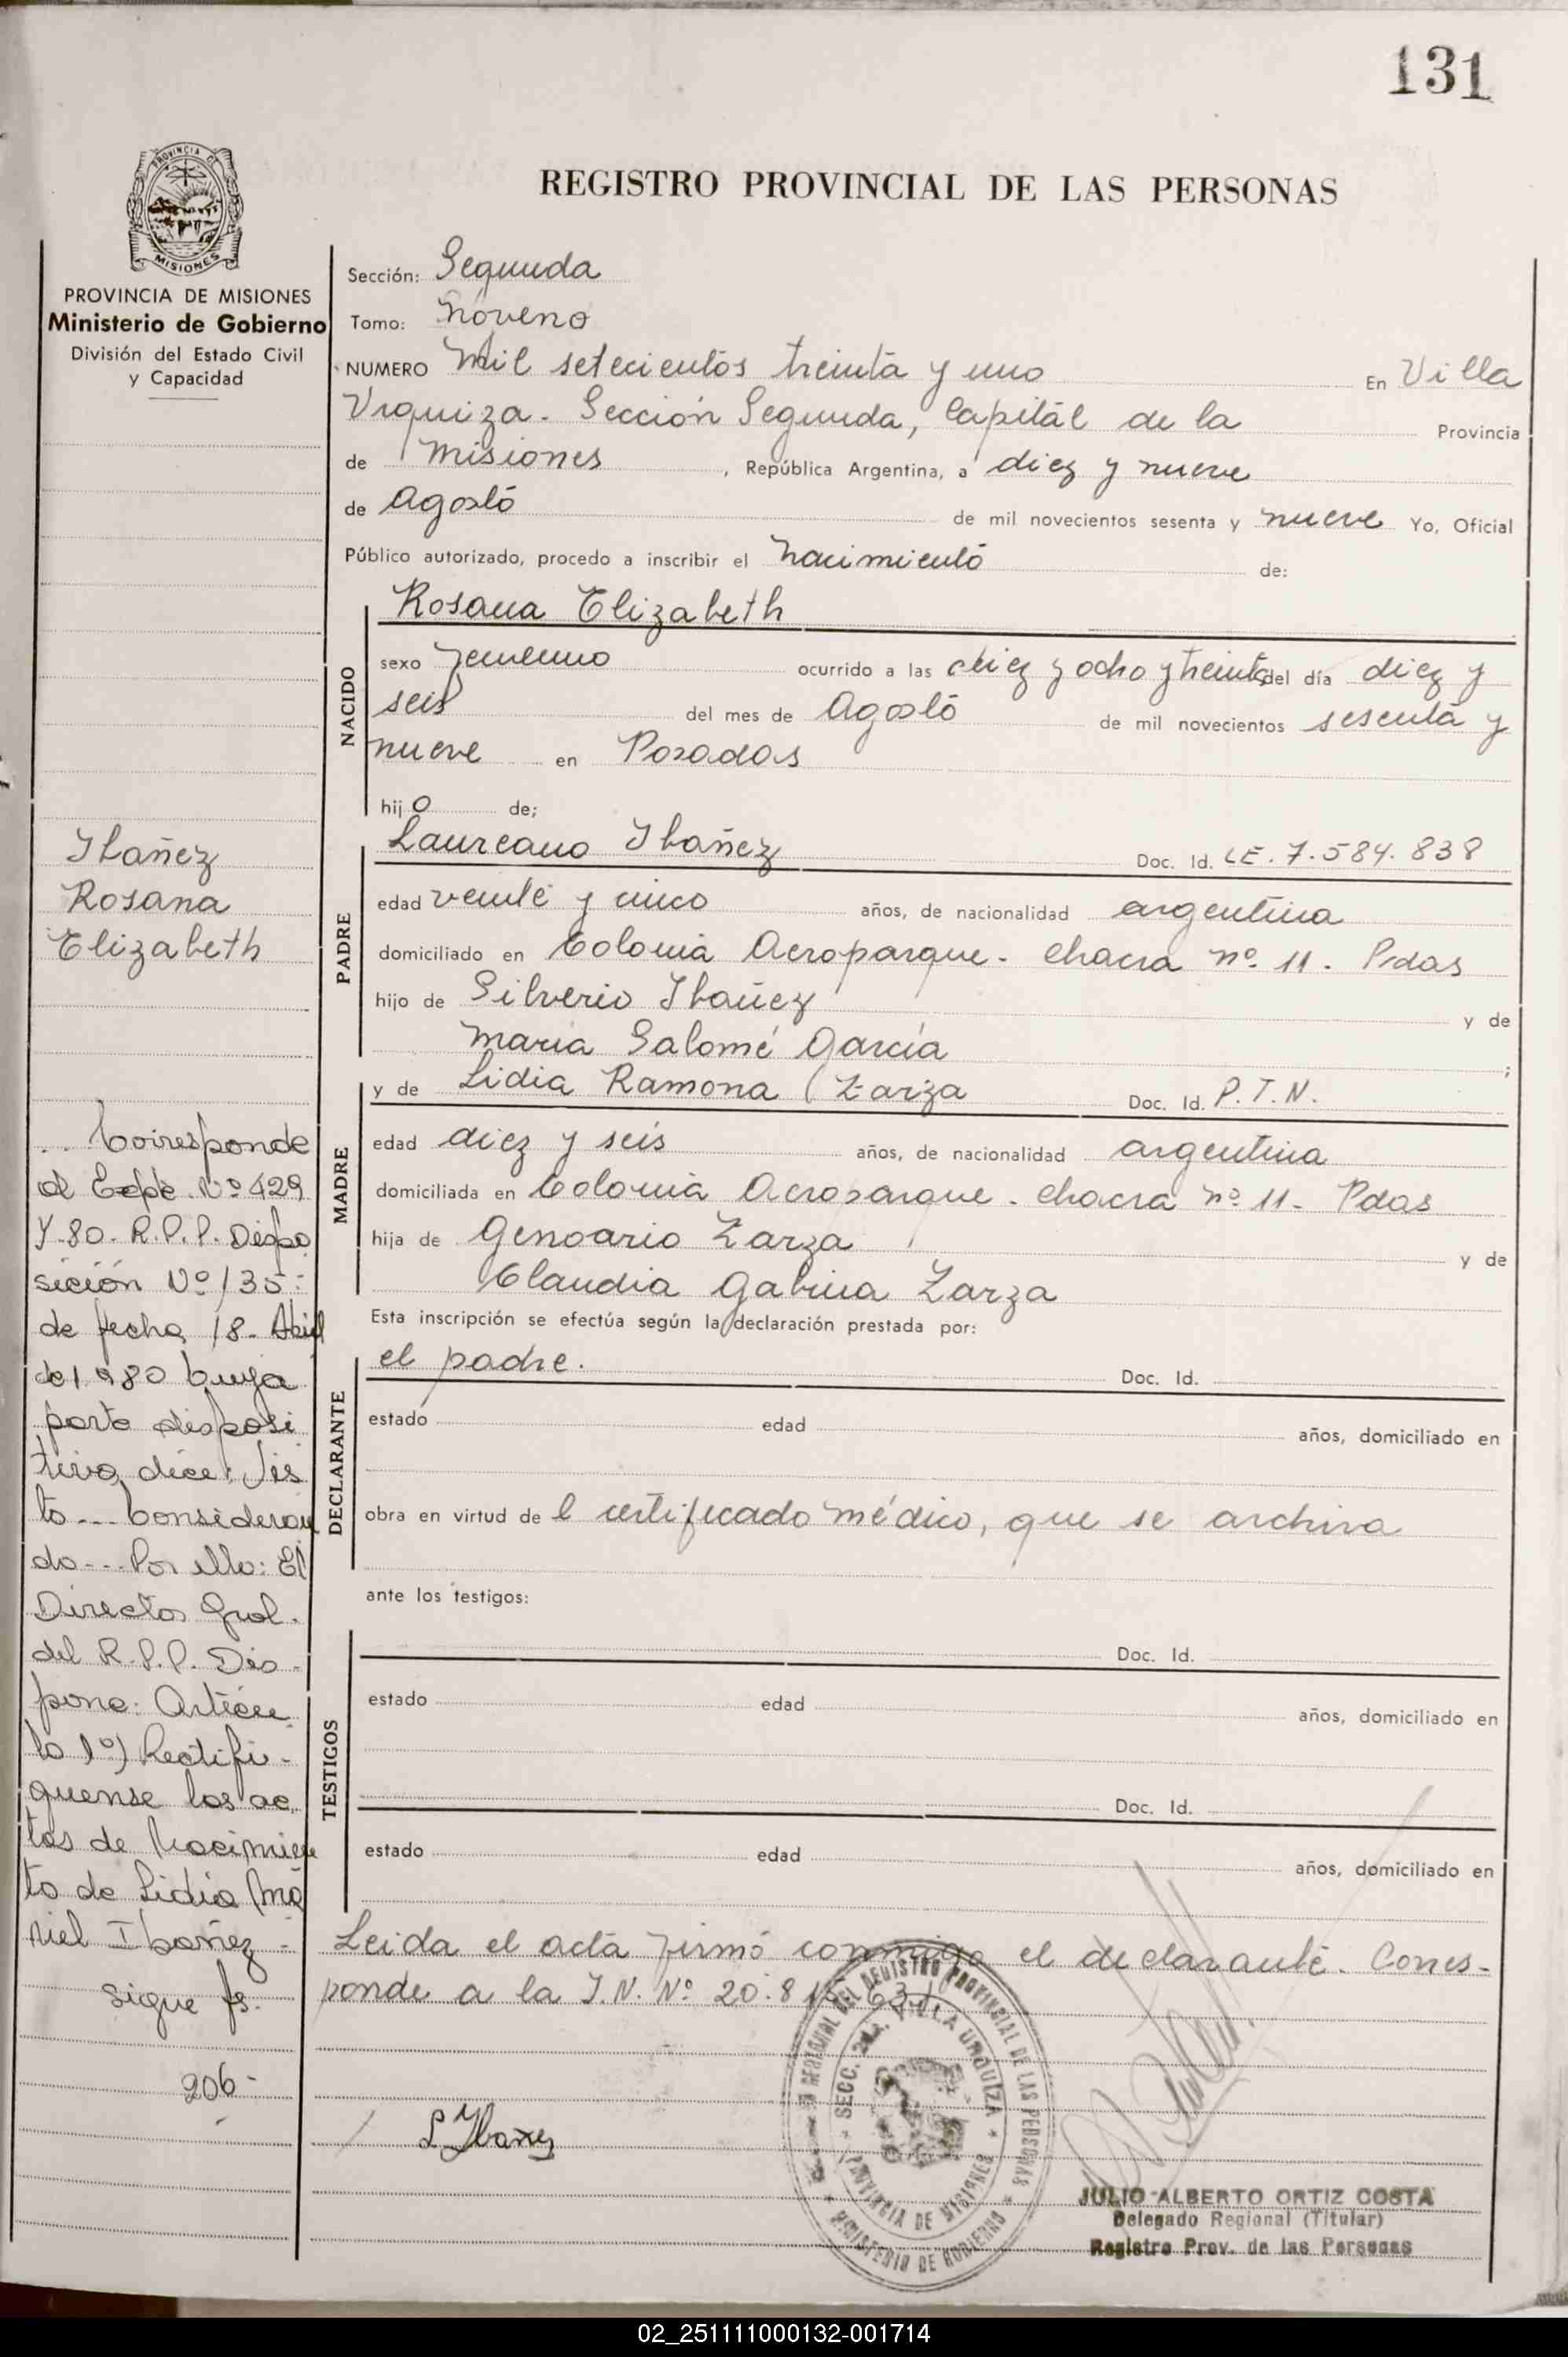 131
PROVINCIA DE
MISIONES
REGISTRO PROVINCIAL DE LAS PERSONAS
PROVINCIA DE MISIONES
Ministerio de Gobierno
División del Estado Civil
y Capacidad
Sección: Segunda
Tomo: Noveno
NUMERO Mil setecientos treinta y uno En Villa
Urquiza. Sección Segunda, Capital de la Provincia
de Misiones, República Argentina, a diez y nueve
de Agosto de mil novecientos sesenta y nueve Yo, Oficial
Público autorizado, procedo a inscribir el Nacimiento de:
NACIDO
Rosana Elizabeth
sexo femenino ocurrido a las diez y ocho y treinta del día diez y
seis del mes de Agosto de mil novecientos sesenta y
nueve en Posadas
hij o de;
Ibañez
Rosana
Elizabeth
PADRE
Laureano Ibañez Doc. Id. LE. 7.584.838
edad veinte y cinco años, de nacionalidad argentina
domiciliado en Colonia Aeroparque - chacra nº 11. Pdas
hijo de Silverio Ibañez y de
Maria Salomé Garcia ;
MADRE
y de Lidia Ramona Zarza Doc. Id. P.T.N.
edad diez y seis años, de nacionalidad argentina
domiciliada en Colonia Aeroparque - chacra nº 11 - Pdas
hija de Genoario Zarza y de
Claudia Gabina Zarza
Esta inscripción se efectúa según la declaración prestada por:
DECLARANTE
el padre. Doc. Id.
estado edad años, domiciliado en
obra en virtud de l certificado médico, que se archiva
ante los testigos:
TESTIGOS
Doc. Id.
estado edad años, domiciliado en
Doc. Id.
estado edad años, domiciliado en
Corresponde
al Expte. Nº 429
Y-80. R.P.P. Dispo
sición Nº 135-
de fecha 18- Abril
de 1980 cuya
parte disposi
tiva dice: Vis
to --- Consideran
do --- Por ello: El
Director Gral.
del R.P.P. Dis-
pone: Artícu
lo 1º) Rectifi-
quense las ac
tas de Nacimien
to de Lidia Ma
riel Ibañez -
sigue fs.
206-
Leida el acta firmó conmigo el declarante. Corres-
ponde a la I.N. Nº 20.8
L Ibañez
REGISTRO PROVINCIAL DE LAS PERSONAS
SECC. 2da. VILLA URQUIZA
PROVINCIA DE MISIONES
MINISTERIO DE GOBIERNO
JULIO ALBERTO ORTIZ COSTA
Delegado Regional (Titular)
Registro Prov. de las Personas
02_251111000132-001714